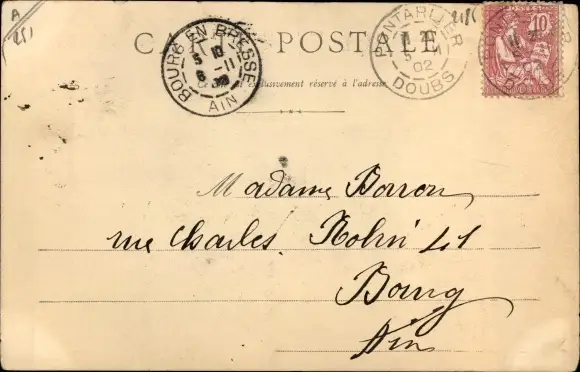 A
251
CARTE POSTALE
Ce côté est exclusivement réservé à l'adresse
BOURG EN BRESSE
5 10
6 -11
AIN
PONTARLIER
02
DOUBS
POSTES
10
Madame Borron
rue Charles Robin 41
Bourg
Ain